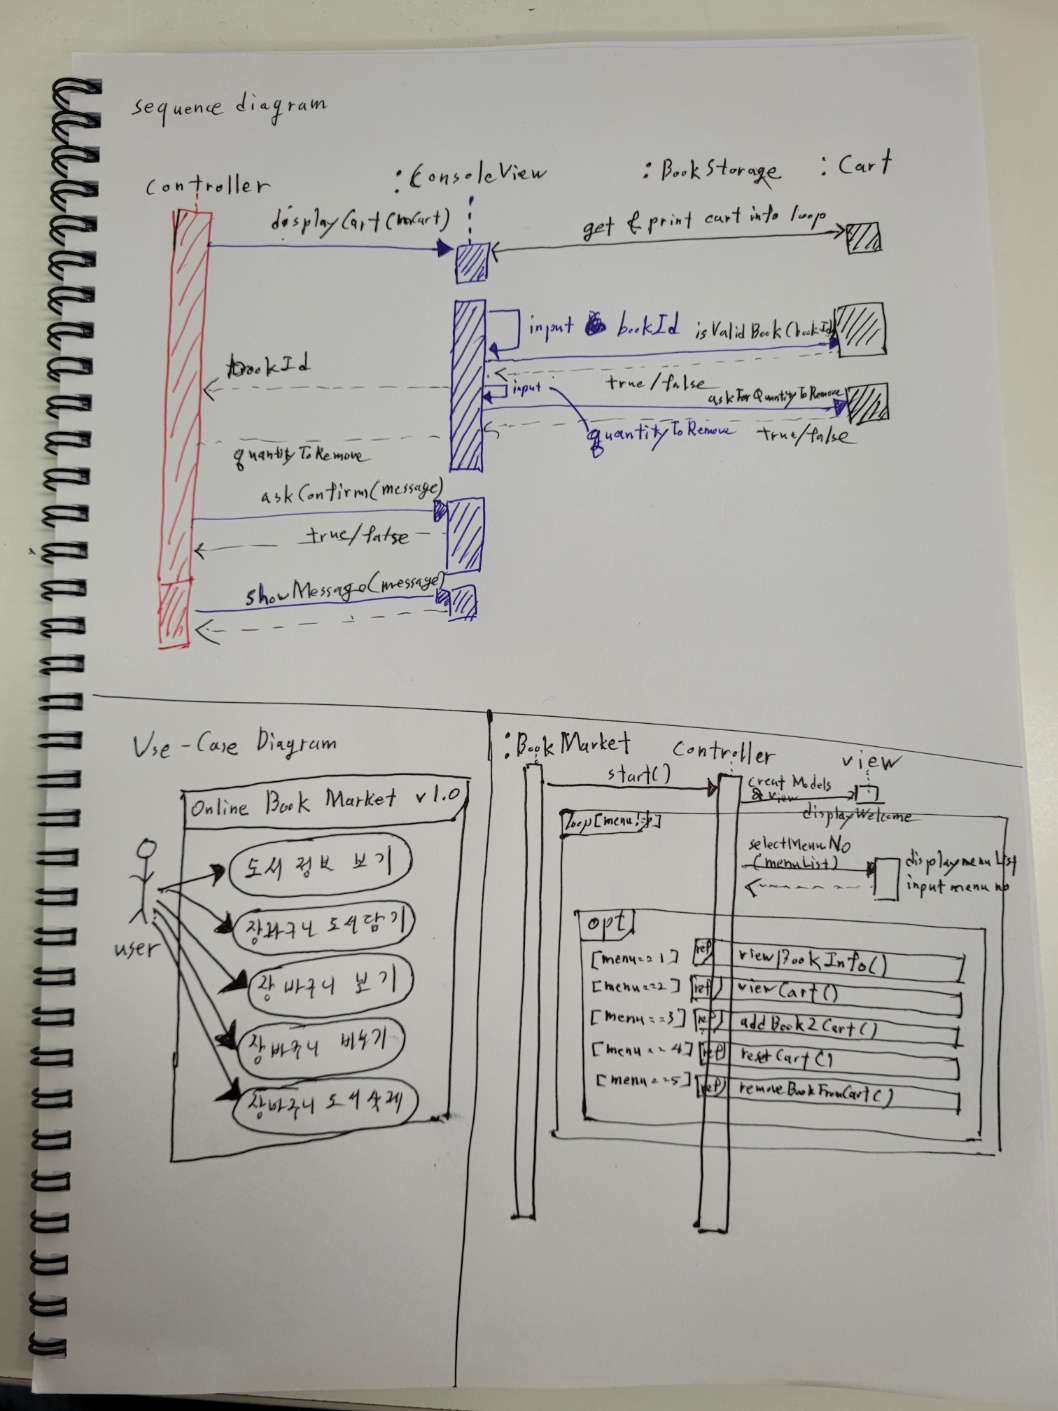 sequence diagram
Controller
:ConsoleView
:BookStorage
:Cart
displayCart(mCart)
get & print cart into loop
input bookId
isValidBook(bookId)
bookId
true/false
input
askForQuantityToRemove
quantityToRemove
true/false
quantityToRemove
askConfirm(message)
true/false
showMessage(message)
Use-Case Diagram
Online Book Market v1.0
도서 정보 보기
장바구니 도서담기
장바구니 보기
장바구니 비우기
장바구니 도서삭제
user
:BookMarket
Controller
view
start()
Creat Models
& view
displayWelcome
loop[menu
selectMenuNo
(menuList)
displaymenuList
input menu no
opt
[menu==1] ref viewBookInfo()
[menu==2] ref viewCart()
[menu==3] ref addBook2Cart()
[menu==4] ref Cart()
[menu==5] ref removeBookFromCart()